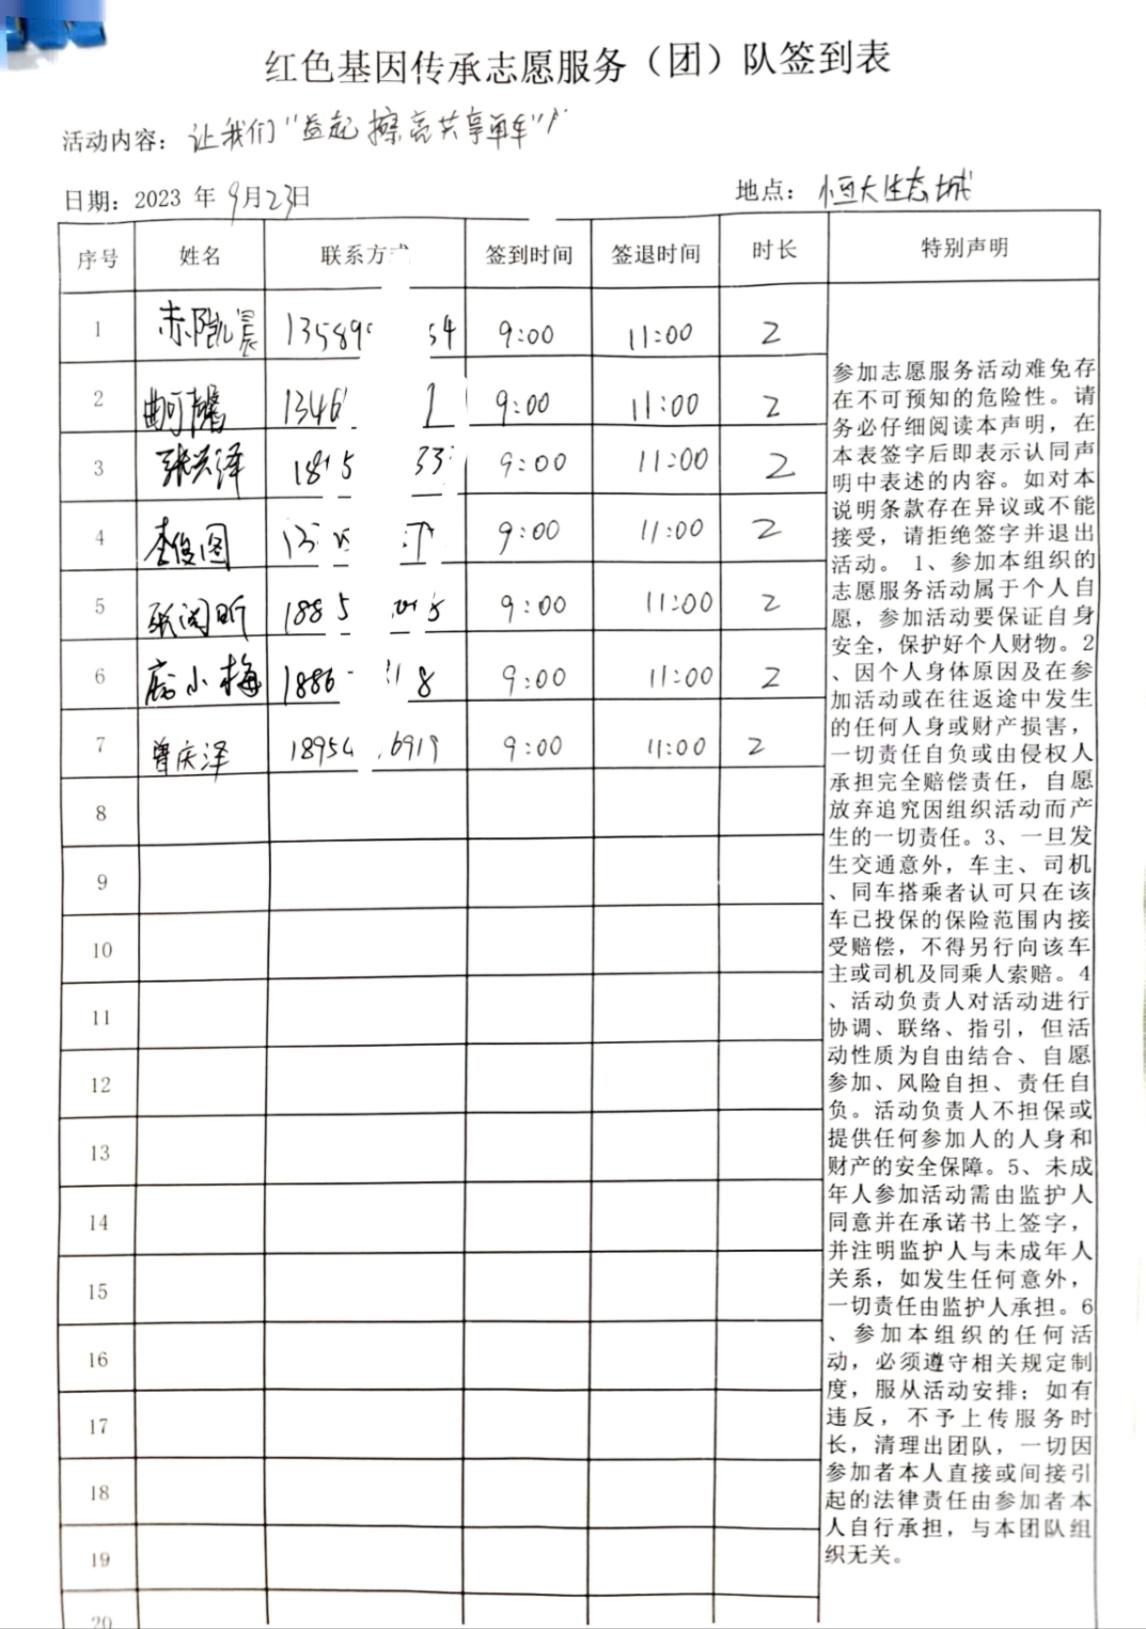 红色基因传承志愿服务（团）队签到表
活动内容：让我们"益起擦亮共享单车"
日期：2023 年 9月23日 地点：恒大生态城
序号 姓名 联系方式 签到时间 签退时间 时长 特别声明
1 凯晨 13589 54 9:00 11:00 2
2 馨 1346 1 9:00 11:00 2
3 张兴泽 18 5 33 9:00 11:00 2
4 李俊图 13 9:00 11:00 2
5 张闵昕 1885 5 9:00 11:00 2
6 小梅 1886 8 9:00 11:00 2
7 曾庆泽 18954 6919 9:00 11:00 2
8
9
10
11
12
13
14
15
16
17
18
19
20
参加志愿服务活动难免存
在不可预知的危险性。请
务必仔细阅读本声明，在
本表签字后即表示认同声
明中表述的内容。如对本
说明条款存在异议或不能
接受，请拒绝签字并退出
活动。 1、参加本组织的
志愿服务活动属于个人自
愿，参加活动要保证自身
安全，保护好个人财物。2
、因个人身体原因及在参
加活动或在往返途中发生
的任何人身或财产损害，
一切责任自负或由侵权人
承担完全赔偿责任，自愿
放弃追究因组织活动而产
生的一切责任。3、一旦发
生交通意外，车主、司机
、同车搭乘者认可只在该
车已投保的保险范围内接
受赔偿，不得另行向该车
主或司机及同乘人索赔。4
、活动负责人对活动进行
协调、联络、指引，但活
动性质为自由结合、自愿
参加、风险自担、责任自
负。活动负责人不担保或
提供任何参加人的人身和
财产的安全保障。5、未成
年人参加活动需由监护人
同意并在承诺书上签字，
并注明监护人与未成年人
关系，如发生任何意外，
一切责任由监护人承担。6
、参加本组织的任何活
动，必须遵守相关规定制
度，服从活动安排；如有
违反，不予上传服务时
长，清理出团队，一切因
参加者本人直接或间接引
起的法律责任由参加者本
人自行承担，与本团队组
织无关。